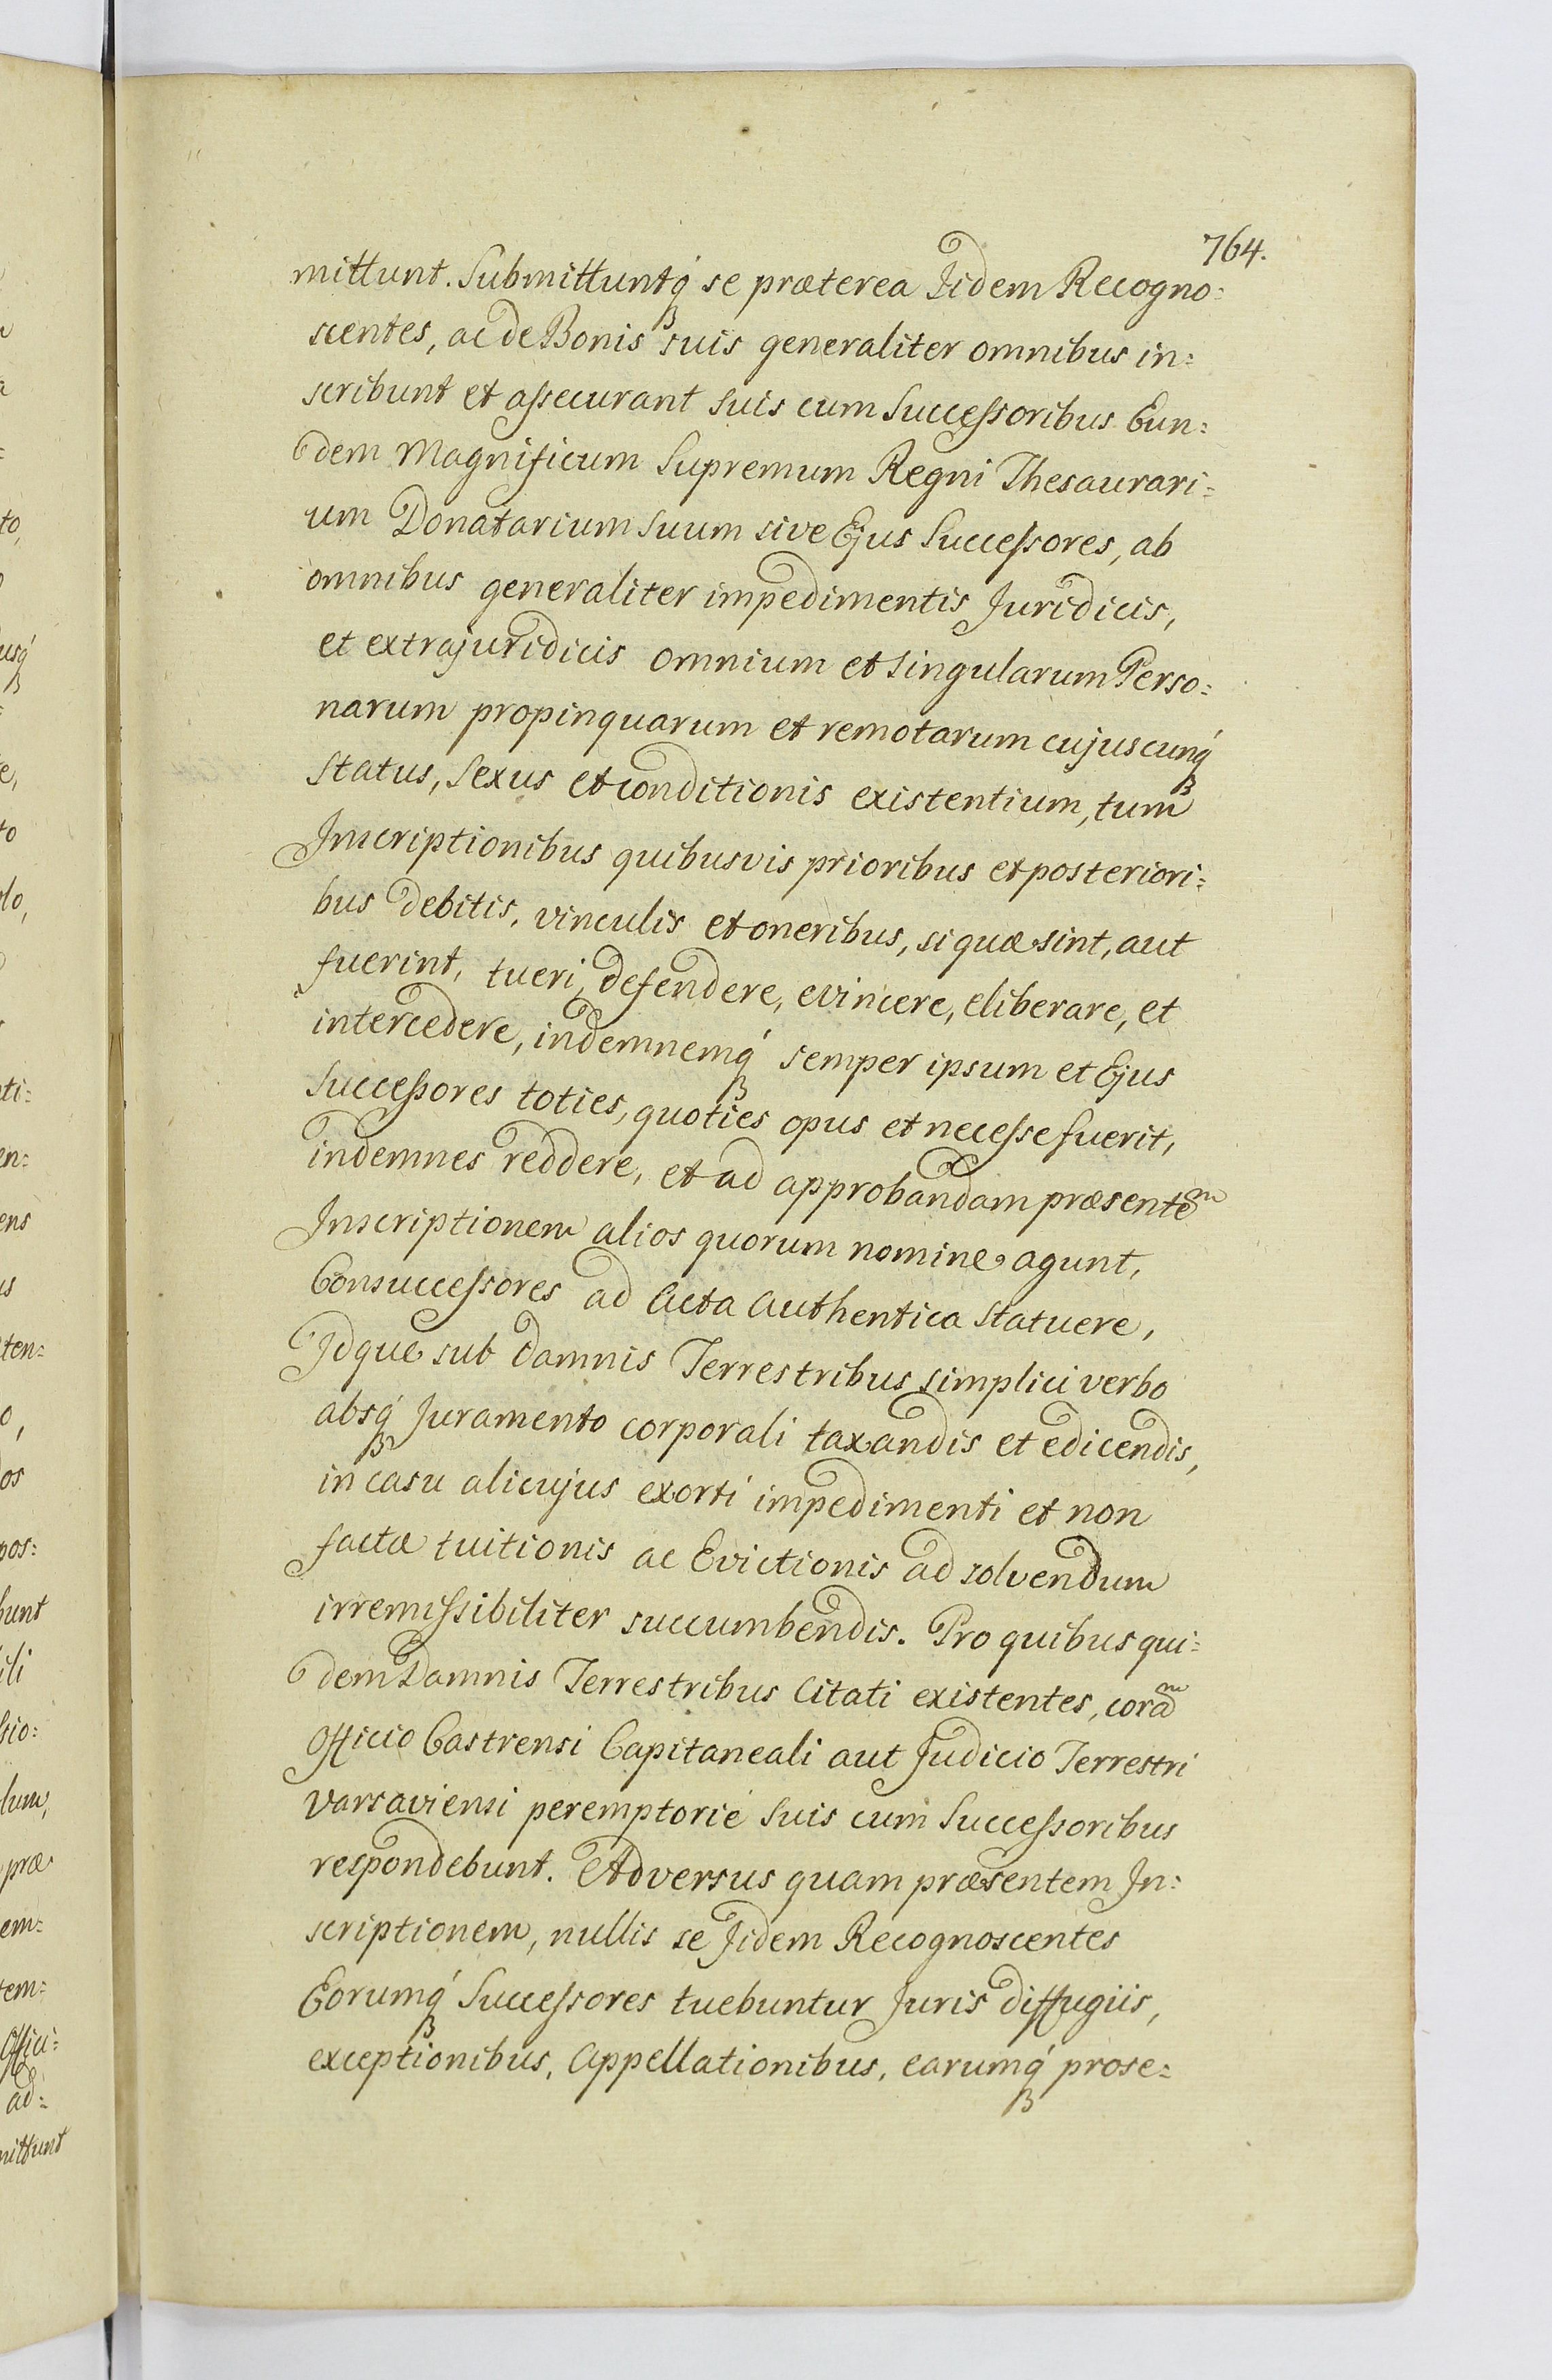 764.
mittunt. Submittuntq́ se præterea Iidem Recogno=
scentes, ac de Bonis suis generaliter omnibus in=
scribunt et assecurant suis cum Successoribus Eun=
dem Magnificum Supremum Regni Thesaurari=
um Donatarium suum sive Ejus Successores, ab
omnibus generaliter impedimentis Juridicis,
et extrajuridicis omnium et singularum Perso=
narum propinquarum et remotarum cujuscunq́
status, sexus et conditionis existentium, tum
Inscriptionibus quibusvis prioribus et posteriori=
bus debitis, vinculis et oneribus, si quæ sint, aut
fuerint, tueri, defendere, evincere, eliberare, et
intercedere, indemnemq́ semper ipsum et Ejus
Successores toties, quoties opus et necesse fuerit,
indemnes reddere, et ad approbandam præsentem
Inscriptionem alios quorum nomine agunt,
Consuccessores ad Acta Authentica statuere,
Idque sub damnis Terrestribus simplici verbo
absq́ Juramento corporali taxandis et edicendis,
in casu alicujus exorti impedimenti et non
factæ tuitionis ac Evictionis ad solvendum
irremissibiliter succumbendis. Pro quibus qui=
dem Damnis Terrestribus Citati existentes, coram
Officio Castrensi Capitaneali aut Judicio Terrestri
Varsaviensi peremptorie suis cum Successoribus
respondebunt. Adversus quam præsentem In=
scriptionem, nullis se Iidem Recognoscentes
Eorumq́ Successores tuebuntur Juris diffugiis,
exceptionibus, Appellationibus, earumq́ prose=
to,
usq́
e,
to
lo,
ti:
en=
ens
us
ten=
o,
dos
pos:
bunt
ili
sio:
lum,
præ
em=
tem=
Offici=
ad=
mittunt